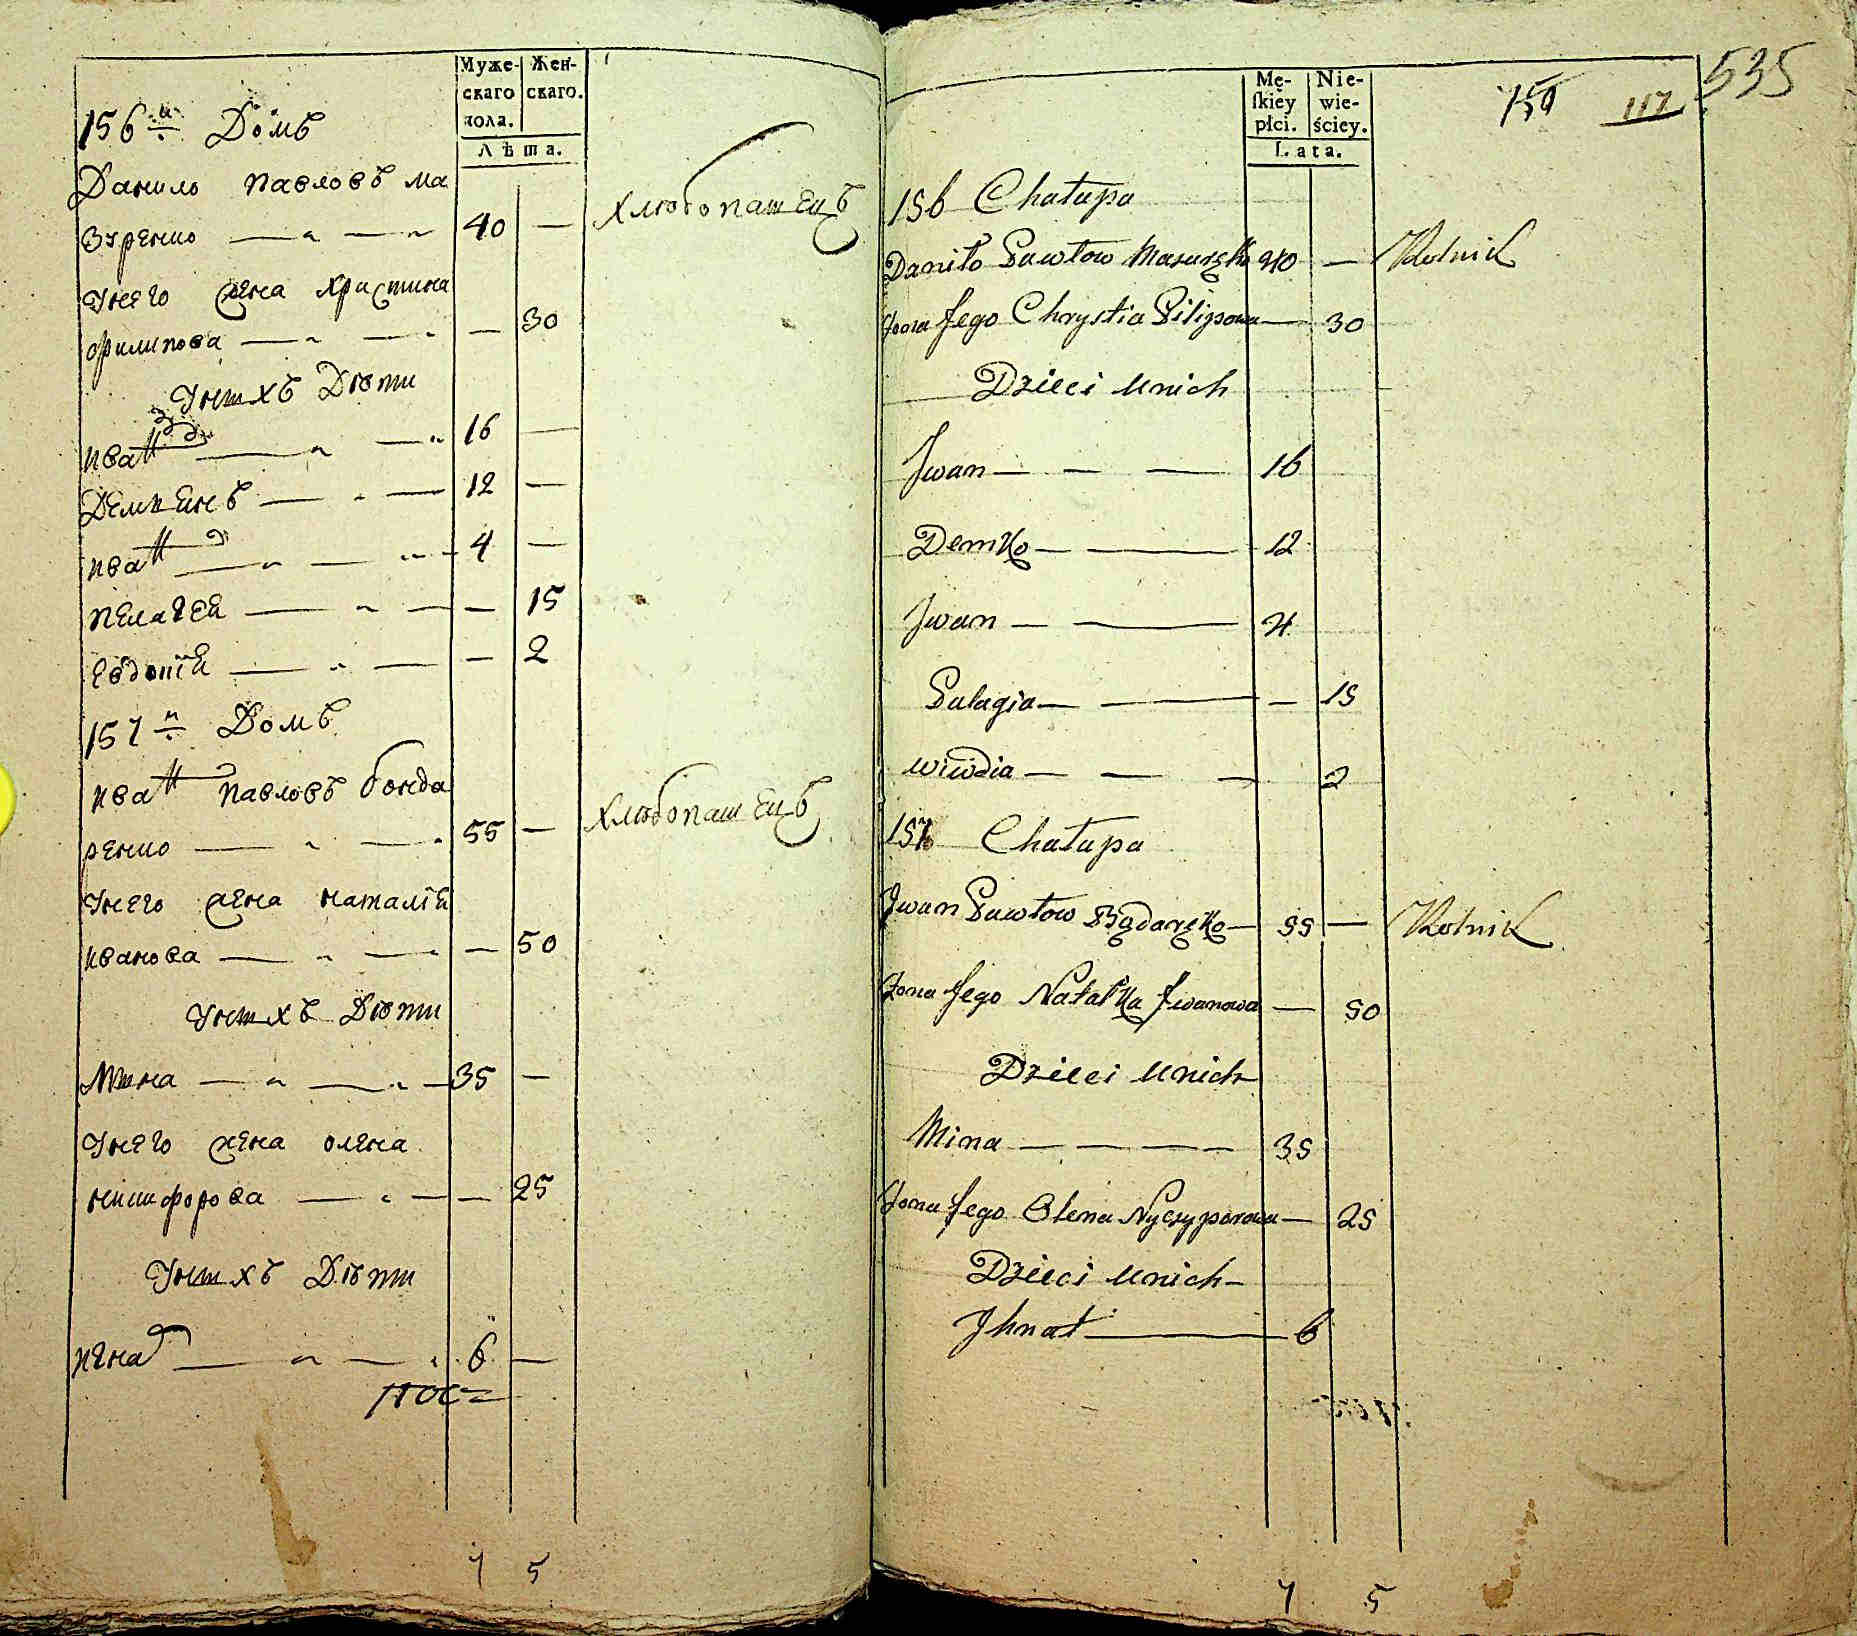 Муже- Жен-
скаго скаго.
пола.
Лѣта.
156 й Домъ
Данило Павловъ Ма
зуренко 40 — хлѣбопашецъ
Унего жена христина
филипова — 30
Унихъ Дѣти
иван 16 —
Демиенъ 12 —
иван 4 —
пелагея — 15
Евдокія — 2
157 й Домъ
иван павловъ бонда
ренко 55 — хлѣбопашецъ
Унего жена наталіе
иванова — 50
Унихъ Дѣти
Мина 35 —
Унего жена олена
никифорова — 25
Унихъ Дѣти
игнат 6 —
7 5
535
117
Mę- Nie-
skiey wie-
płci. ściey.
Lata.
156 Chałupa
Daniło Pawłow Mazuręko 40 — Rolnik
Żona Jego Chrystia Pilipowa — 30
Dzieci Unich
Jwan 16
Demko 12
Jwan 4
Palagia — 15
Wiwdia — 2
157 Chałupa
Jwan Pawłow Bądaręko 55 — Rolnik
Żona Jego Natałka Jwanowa — 50
Dzieci Unich
Mina 35
Żona Jego Olena Nyczyporowa — 25
Dzieci Unich
Jhnat 6
7 5